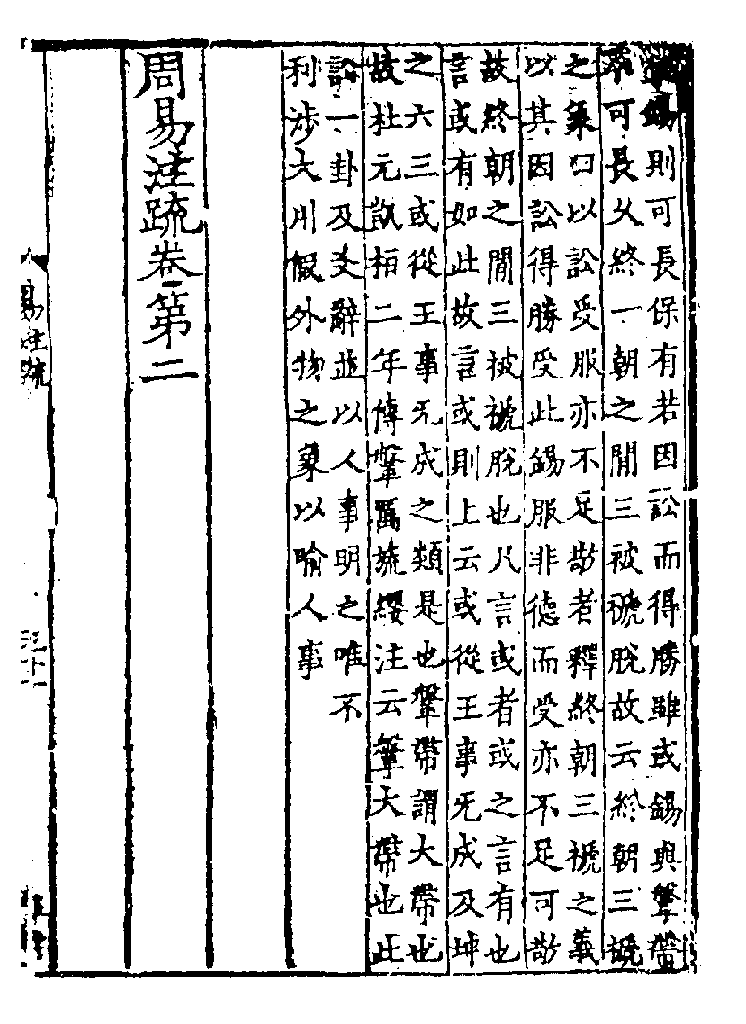 錫則可長保有若因訟而得勝雖或錫與鞶帶
不可長久終一朝之閒三被褫脫故云終朝三褫
之象曰以訟受服亦不足敬者釋終朝三褫之義
以其因訟得勝受此錫服非德而受亦不足可敬
故終朝之閒三被褫脫也凡言或者或之言有也
言或有如此故言或則上云或從王事无成及坤
之六三或從王事无成之類是也鞶帶謂大帶也
故杜元凱桓二年傳鞶厲旒纓注云鞶大帶也此
訟一卦及爻辭並以人事明之唯不
利涉大川假外物之象以喻人事
周易注疏卷第二
易注疏